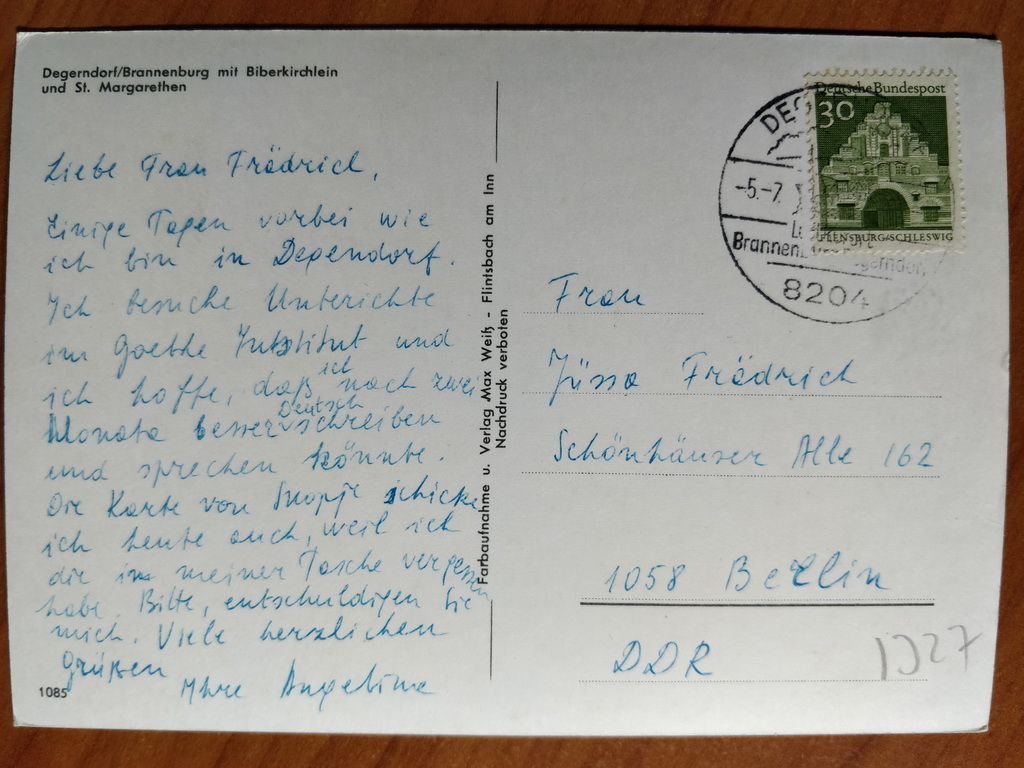 Degerndorf/Brannenburg mit Biberkirchlein
und St. Margarethen
Liebe Frau Frädrich,
Einige Tagen vorbei wie
ich bin in Degendorf.
Ich besuche Unterichte
im Goethe Institut und
ich hoffe, daß ich nach zwei
Monata besser Deutsch schreiben
und sprechen könnte.
Die Karte von Skopje schicke
ich heute auch, weil ich
die in meiner Tasche vergessen
habe. Bitte, entschuldigen Sie
mich. Viele herzlichen
Grüßen
Ihre Angelina
1085
Farbaufnahme u. Verlag Max Weiß - Flintsbach am Inn
Nachdruck verboten
Deutsche Bundespost
30
FLENSBURG/SCHLESWIG
-5.-7.
8204
Frau
Jüssa Frädrich
Schönhäuser Alle 162
1058 Berlin
DDR